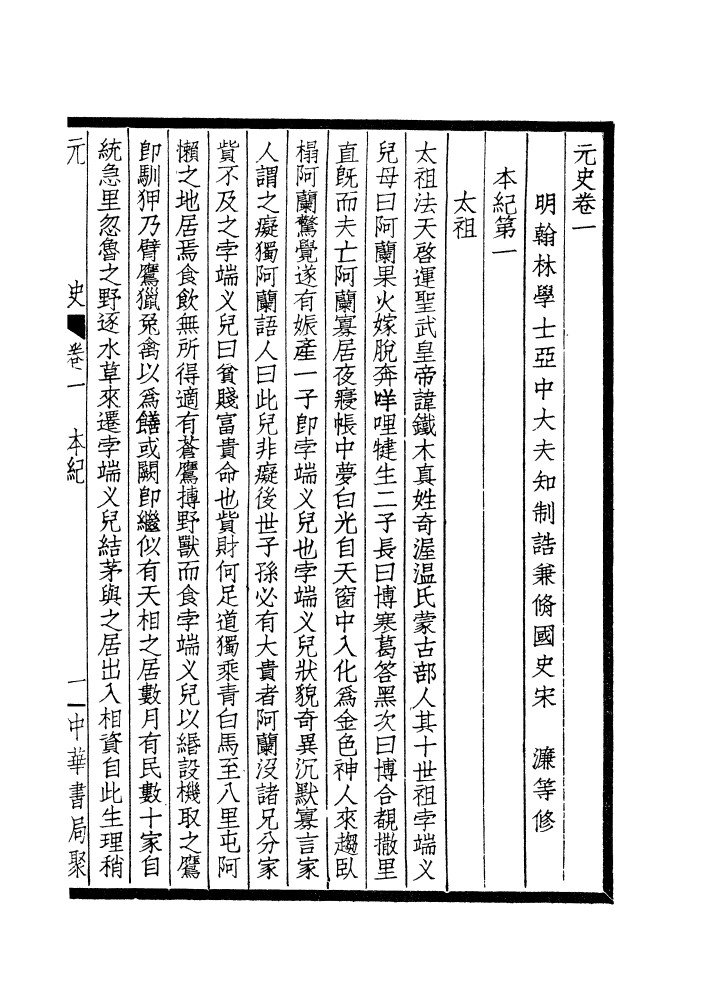 元史卷一
明翰林學士亞中大夫知制誥兼脩國史宋　濂等修
本紀第一
太祖
太祖法天啓運聖武皇帝諱鐵木真姓奇渥温氏蒙古部人其十世祖孛端义
兒母曰阿蘭果火嫁脫奔咩哩犍生二子長曰博寒葛答黑次曰博合覩撒里
直旣而夫亡阿蘭寡居夜寢帳中夢白光自天窗中入化爲金色神人來趨臥
榻阿蘭驚覺遂有娠產一子卽孛端义兒也孛端义兒狀貌奇異沉默寡言家
人謂之癡獨阿蘭語人曰此兒非癡後世子孫必有大貴者阿蘭沒諸兄分家
貲不及之孛端义兒曰貧賤富貴命也貲財何足道獨乘青白馬至八里屯阿
懶之地居焉食飲無所得適有蒼鷹搏野獸而食孛端义兒以緡設機取之鷹
卽馴狎乃臂鷹獵兔禽以爲饍或闕卽繼似有天相之居數月有民數十家自
統急里忽魯之野逐水草來遷孛端义兒結茅與之居出入相資自此生理稍
元　史　卷一　本紀　一　中華書局聚